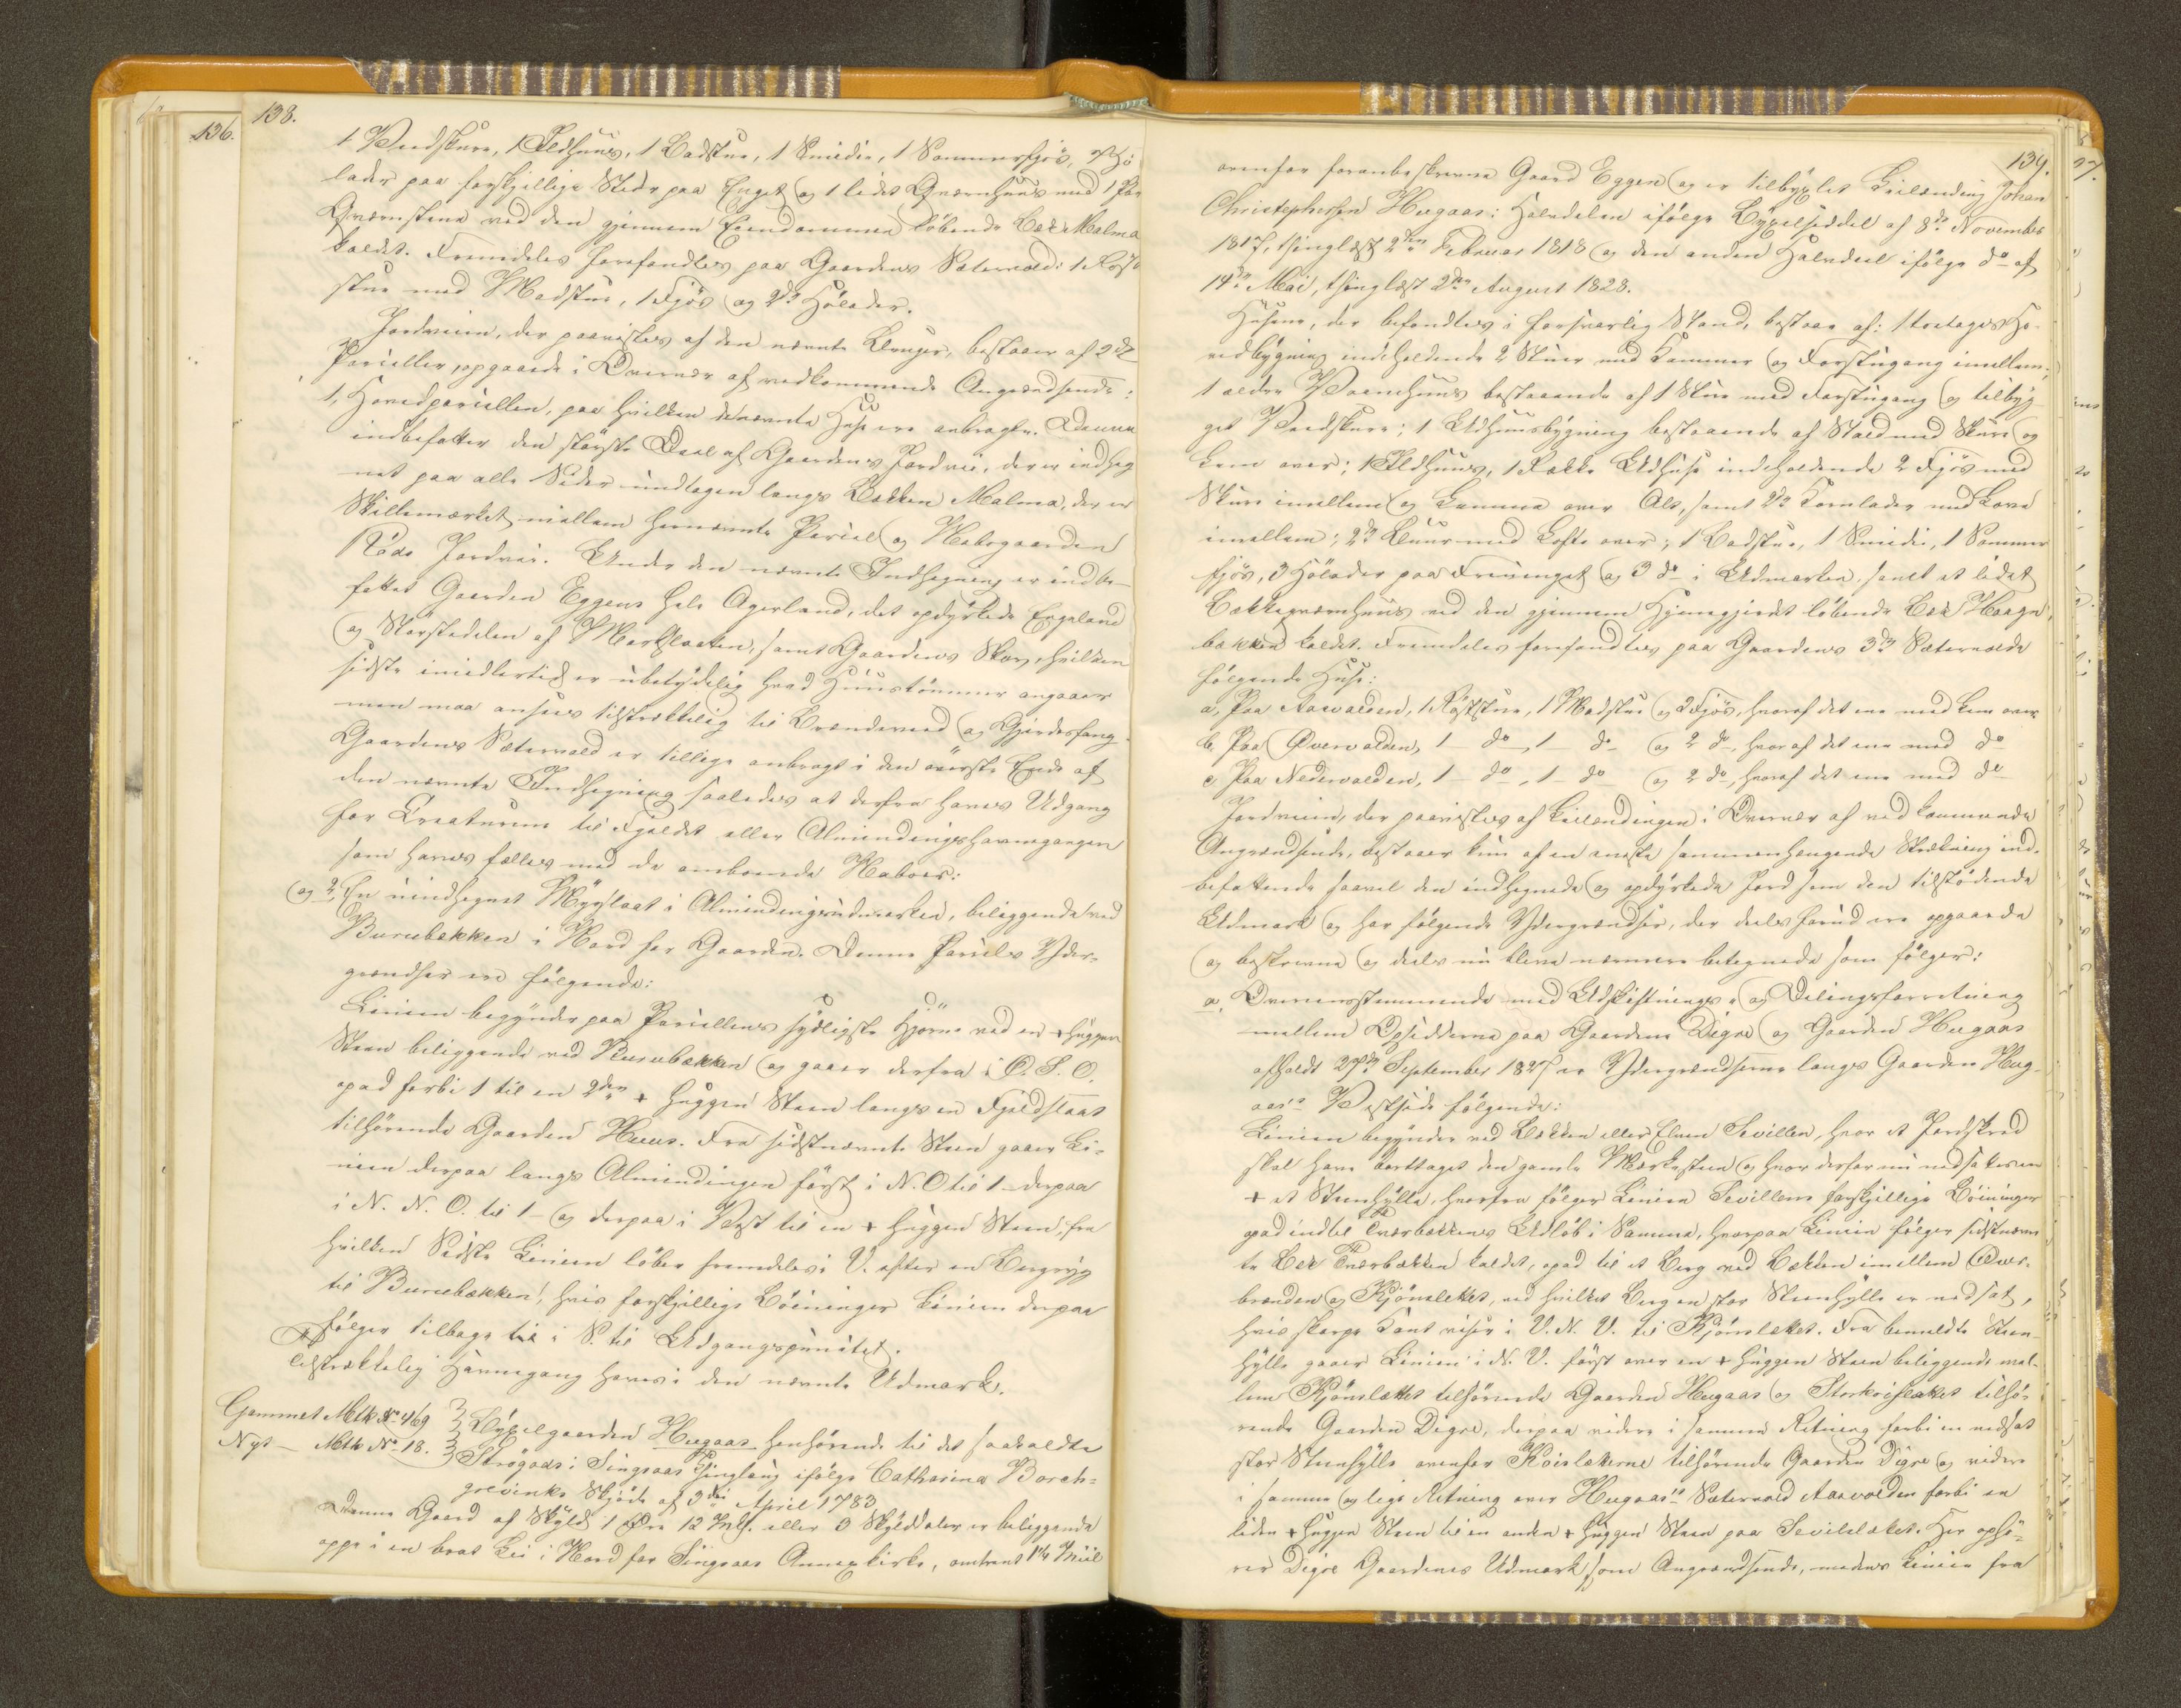 136.
138.
1 Vedskure, 1 Ildhuus, 1 Badstue, 1 Smidie, 1 Sommerfjös, 7 Hö
lader paa forskjellige Steder paa Enget og 1 lidet Qværnhuus med 1 Par
Qværnstene ved den gjennem Eiendommen löbende Bæk Malma
kaldet. Fremdeles forefandtes paa Gaardens Sætervold: 1 Röst
stue med Madstue, 1 Fjös og 2de Hölader.
Jordveien, der paavistes af den nævnte Bruger, bestaaer af 2de
Parceller, opgaaede i Overvær af vedkommende Angrændsende:
1, Hovedparcellen, paa hvilken benævnte Huse ere anbragte. Denne
indbefatter den störste Deel af Gaardens Jordvei, der er indheg
net paa alle Sider undtagen langs Bækken Malma, der er
Skillemærket mellem hernævnte Parcel og Nabogaarden
Röds Jordvei. Under den nævnte Indhegning er indbe-
fattet Gaarden Eggens hele Agerland, det opdyrkede Engeland
og Störstedelen af Markslaatten, samt Gaardens Skov, hvilken
sidste imidlertid er ubetydelig hvad Huustömmer angaaer
men maa ansees tilstrækkelig til Brændeved og Gjerdesfang.
Gaardens Sætervold er tillige anbragt i den överste Ende af
den nævnte Indhegning saaledes at derfra haves Udgang
for Creaturene til Fjeldet eller Almindingshavnegangen
som haves fælles med de omboende Naboer:
og 2, En uindhegnet Myrslaat i Almindingsudmarken, beliggende ved
Burubækken i Nord for Gaarden. Denne Parcels Yder-
grændser ere fölgende:
Linien begynder paa Parcellens sydligste Hjörne ved en + huggen
Steen beliggende ved Burubækken og gaaer derfra i O. S. O.
opad forbi 1 til en 2den + huggen Steen langs en Fjeldslaat
tilhörende Gaarden Huus. Fra sidstnævnte Steen gaaer Li-
nien derpaa langs Almindingen först i N. O til 1 derpaa
i N. N. O. til 1 og derpaa i Vest til en + huggen Steen, fra
hvilken Sidste Linien löber fremdeles i V. efter en Bergryg
til Burubækken, hvis forskjellige Böininger Linien derpaa
fölger tilbage til i S. til Udgangspunctet.
Tilstrækkelig Havnegang haves i den nævnte Udmark.
Gammel Mtk No 469
Nyt — Mtk No 18.
Bygselgaarden Hugaas henhörende til det saakaldte
Strögods i Singsaas Thinglaug ifölge Catharina Borch-
grevinks Skjöde af 3die April 1783
Denne Gaard af Skyld 1 Öre 12 Mrkl. eller 3 Skylddaler er beliggende
oppe i en brat Lie i Nord for Singsaas Annexkirke, omtrent 1 1/4 Miil
139.
ovenfor foranbeskrevne Gaard Eggen og er tilbygslet Leilænding Johan
Christophersen Hugaas: Halvdelen ifölge Bygselseddel af 8de November
1817, thinglæst 2den Februar 1818 og den anden Halvdeel ifölge do af
14de Mai, thinglæst 2den August 1828.
Husene, der befandtes i forsvarlig Stand, bestaae af: 1 toetages Ho-
vedbygning indeholdende 2 Stuer med Kammer og Forstugang imellem;
1 ældre Vaanehuus bestaaende af 1 Stue med Forstugang og tilbyg
get Vedskure; 1 Udhuusbygning bestaaende af Stald med Skure og
Lem over; 1 Ildhuus, 1 Række Udhuse indeholdende 2 Fjös med
Skure imellem og Lemme over Alt, samt 2de Kornlader med Love
imellem; 2de Buur med Lofte over; 1 Badstue, 1 Smidie, 1 Sommer
fjös, 3 Hölader paa Hjemenget og 3 do i Udmarken, samt et lidet
Bækkeqværnhuus ved den gjennem Hjemegjerdet löbende Bæk Haage
bækken kaldet. Fremdeles forefandtes paa Gaardens 3de Sætervolde
fölgende Huse:
a, Paa Aasvolden, 1 Röststue, 1 Madstue og 2 Fjös, hvoraf det ene med Lem over
b, Paa Övervolden, 1 do, 1 do og 2 do, hvoraf det ene med do
c, Paa Nedervolden, 1 do, 1 do og 2 do, hvoraf det ene med do
Jordveien, der paavistes af Leilændingen i Overvær af vedkommende
Angrændsende, bestaaer kun af en eneste sammenhængende Strækning ind-
befattende saavel den indhegnede og opdyrkede Jord som den tilstödende
Udmark og har fölgende Ydergrændser, der deels forud ere opgaaede
og beskrevne og deels nu bleve nærmere betegnede som fölger:
a, Overeensstemmende med Udskiftnings- og Delingsforretning
mellem Opsidderne paa Gaardene Digre og Gaarden Hugaas
afholdt 27de September 1827 er Ydergrændserne langs Gaarden Hug-
aas's Vestside fölgende:
Linien begynder ved Bækken eller Elven Sevillen, hvor et Jordskred
skal have borttaget den gamle Mærkesteen og hvor derfor nu nedsættes en
+ et Steenhylle, hvorfra fölger Linien Sevillens forskjellige Böininger
opad indtil Tverbækkens Udlöb i Samme, hvorpaa Linien fölger sidstnævn
te Bæk Tverbækken kaldet, opad til et Berg ved Bækken imellem Over-
brænden og Kjönslettet, ved hvilket Berg en stor Steenhylle er nedsat,
hvis skarpe Kant viser i V. N. V. til Kjönsleket. Fra bemeldte Steen-
hylle gaaer Linien i N. V. först over en + huggen Steen beliggende mel-
lem Kjönslættet tilhörende Gaarden Hugaas og Storkoisleket tilhö-
rende Gaarden Digre, derpaa videre i samme Retning forbi en nedsat
stor Steenhylle ovenfor Koislækerne tilhörende Gaarden Digre og videre
i samme og lige Retning over Hugaas's Sætervold Aasvolden forbi en
liden + huggen Steen til en anden + huggen Steen paa Sevilslæket. Her ophö-
rer Digre Gaardenes Udmark som Angrændsende, medens Linien fra